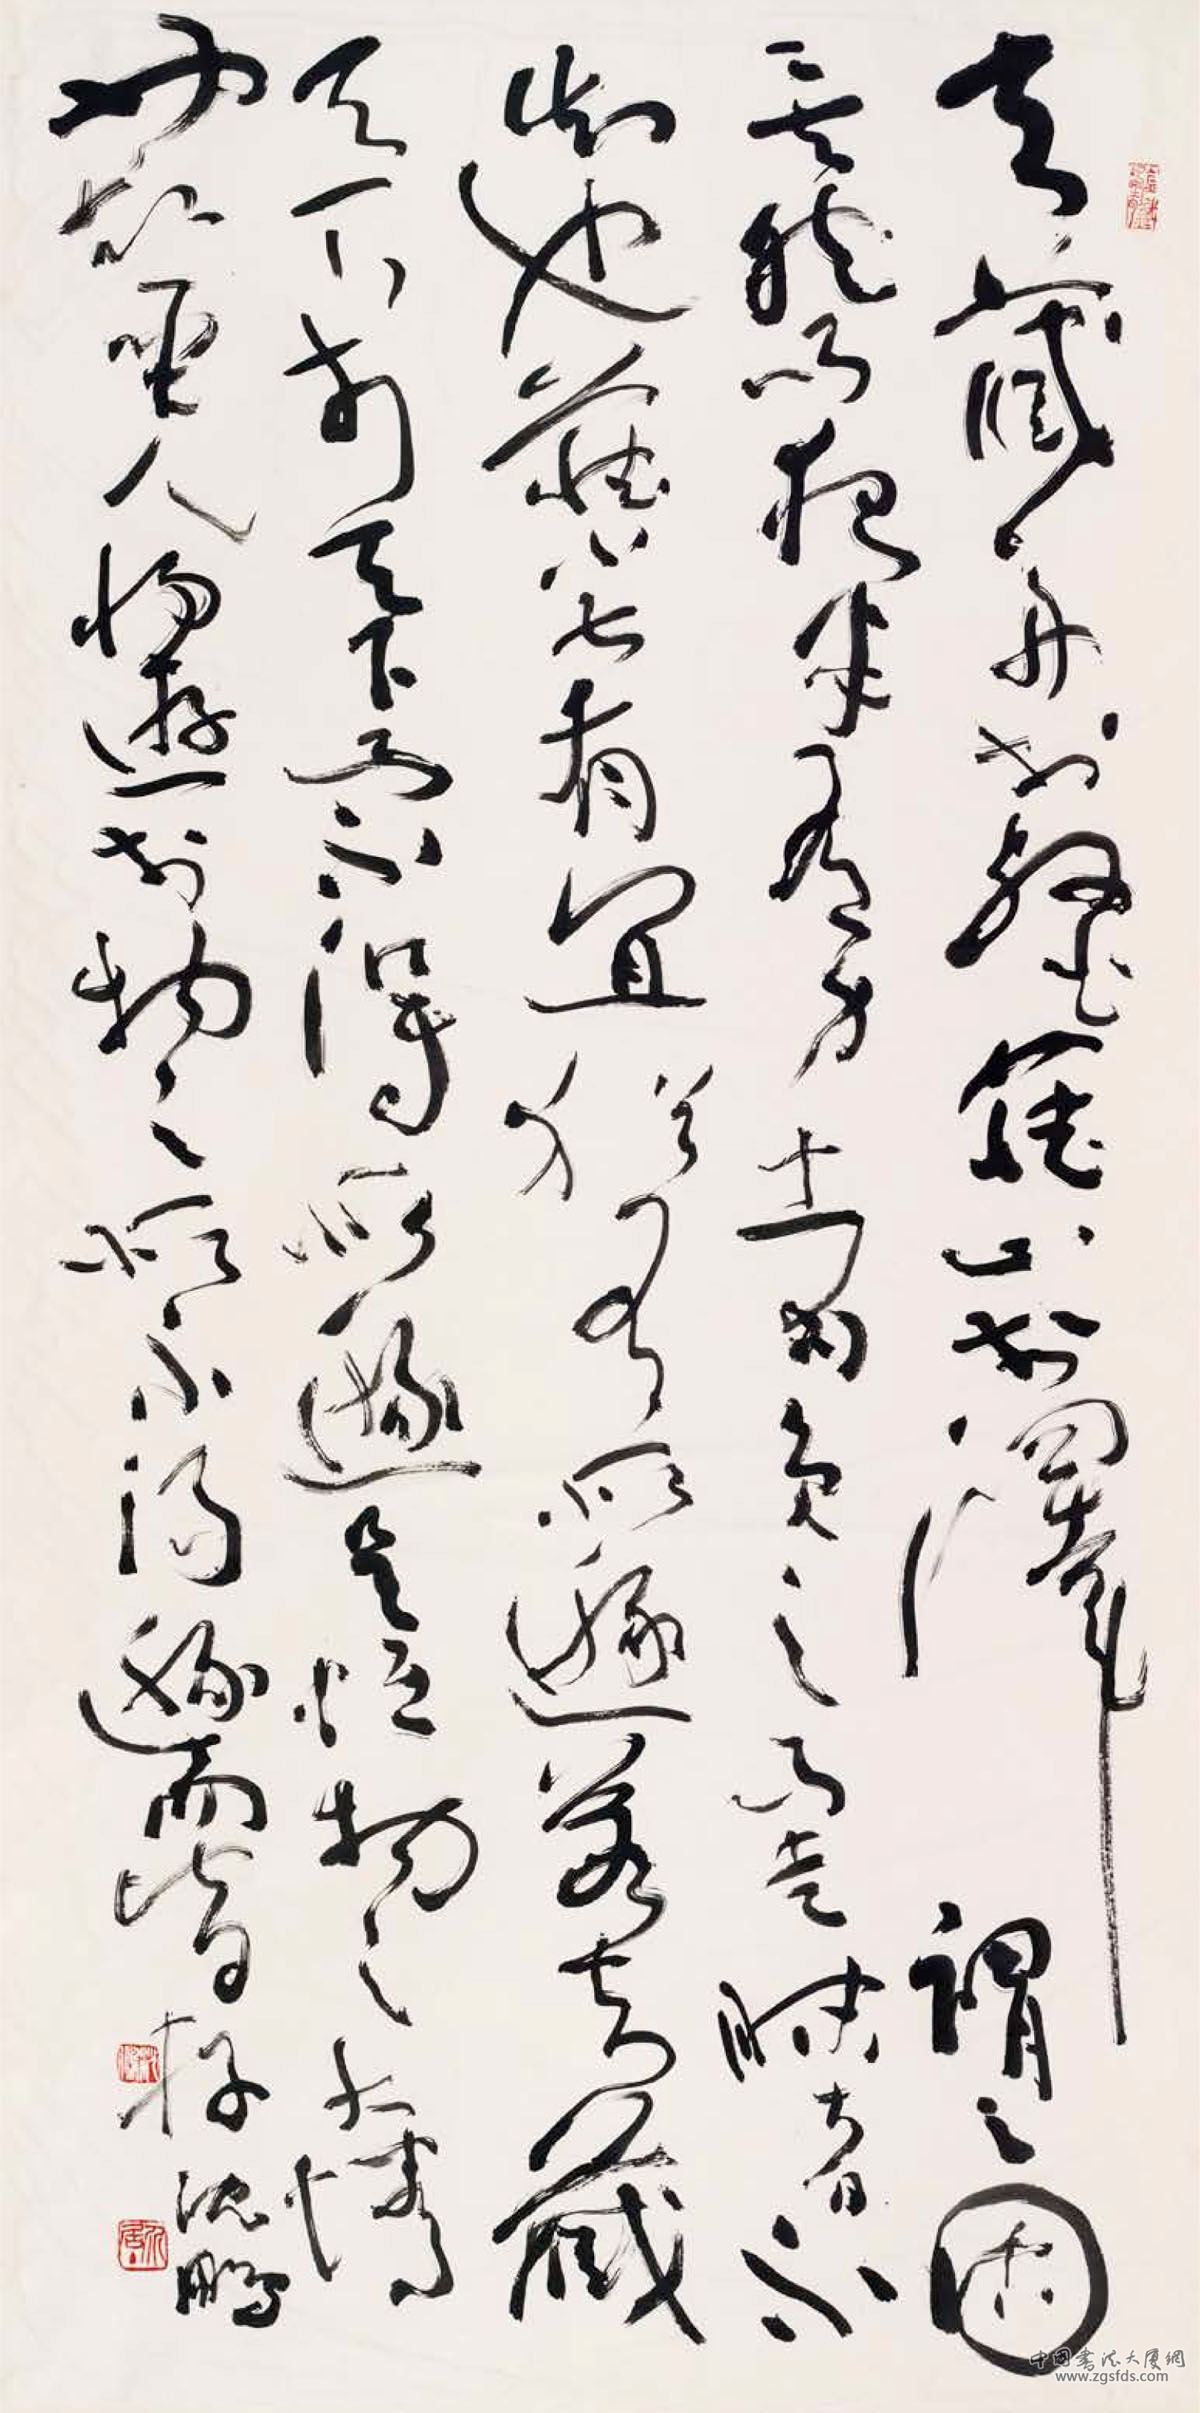 夫藏舟於壑藏山於澤謂之固
矣然而夜半有力者負之而走昧者不
知也藏小大有宜猶有所遯若夫藏
天下於天下而不得所遯是恆物之大情
也故聖人將遊於物之所不得遯而皆存
沈鵬
中国书法大厦網
www.zgsfds.com